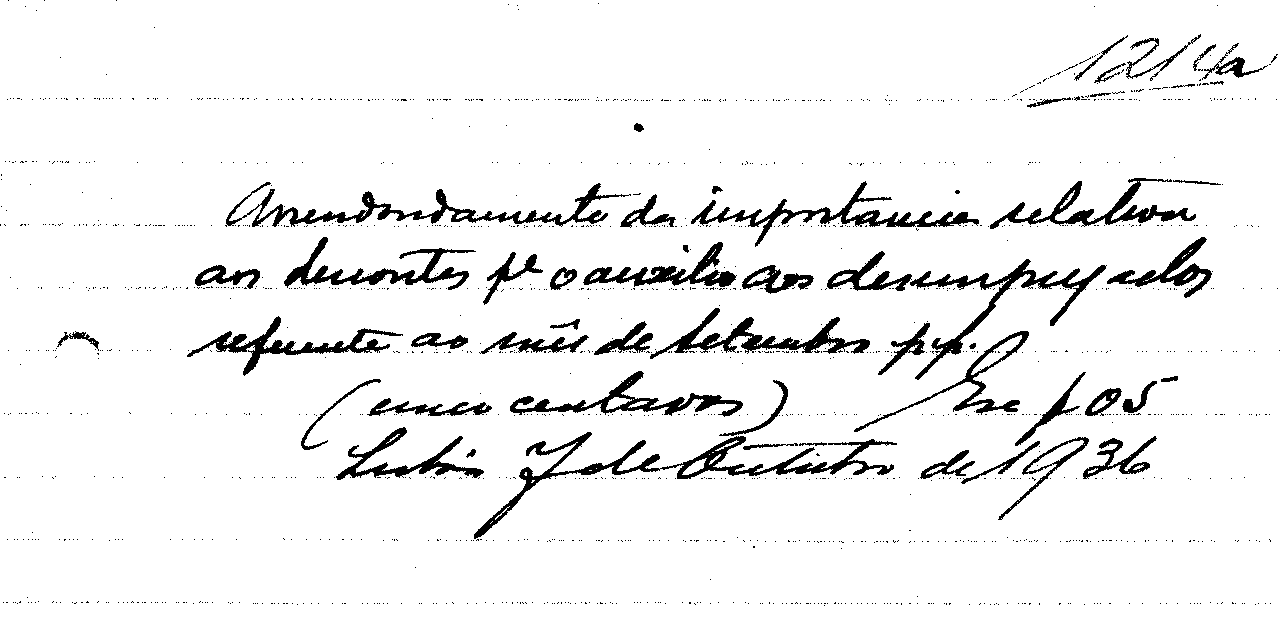 1214a
Arrendondamento da importancia relativa
aos descontos pª o auxilio aos desempregados
referente ao mês de Setembro p.p.
(cinco centavos) Esc $05
Lisbôa 7 de Outubro de 1936